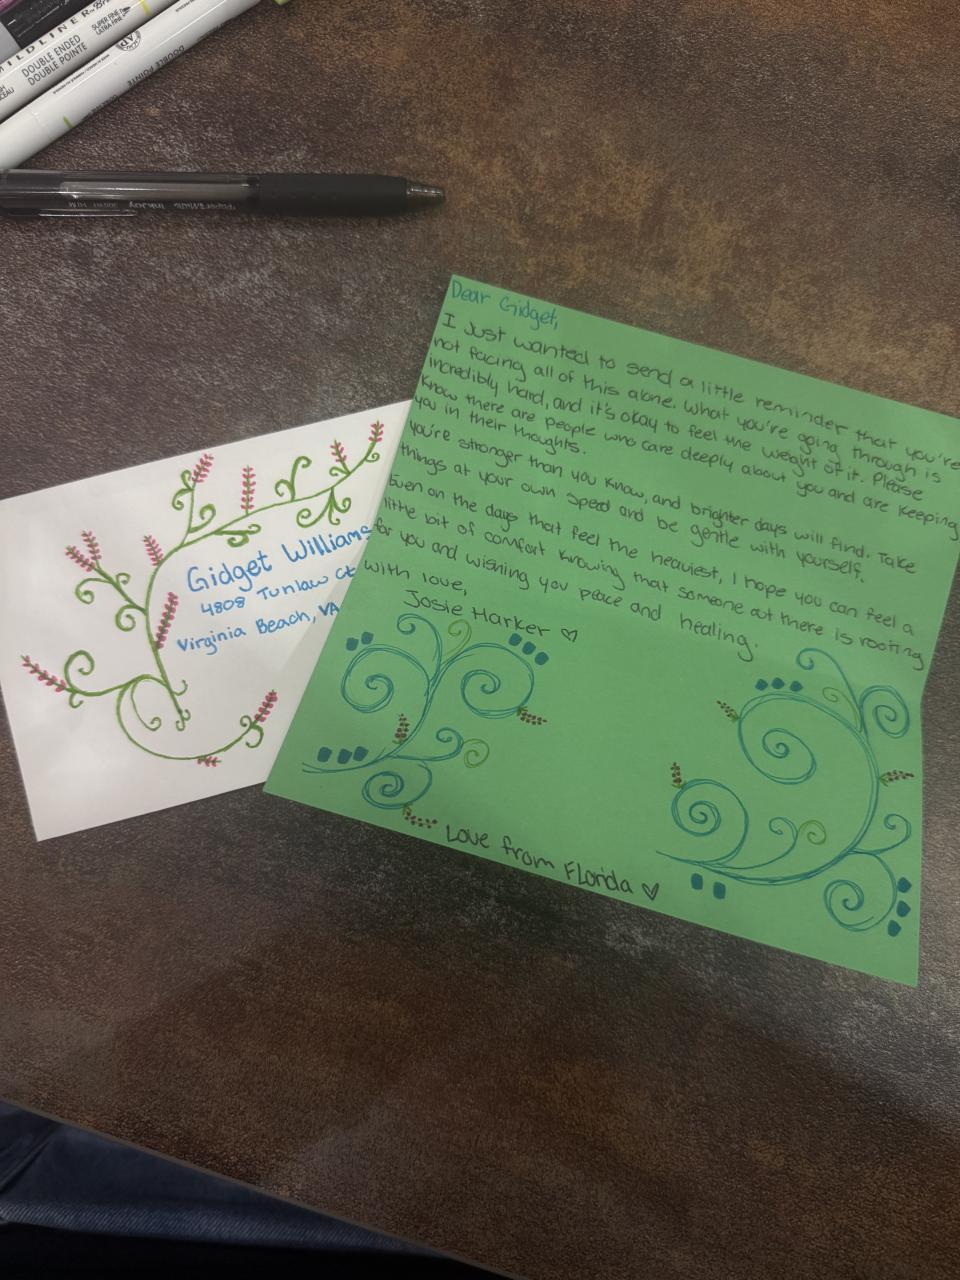 WILDLINER
DOUBLE ENDED
DOUBLE POINTE
SUPER FINE
ULTRA FINE
AP
DOUBLE POINTE
PaperMate InkJoy
Gidget Williams
4808 Tunlaw Ct
Virginia Beach, VA
Dear Gidget,
I Just wanted to send a little reminder that you're
not facing all of this alone. What you're going through is
incredibly hard, and it's okay to feel the weight of it. Please
know there are people who care deeply about you and are keeping
you in their thoughts.
you're stronger than you know, and brighter days will find. Take
things at your own speed and be gentle with yourself.
Even on the days that feel the heaviest, I hope you can feel a
little bit of comfort knowing that someone out there is rooting
for you and wishing you peace and healing.
with love,
Josie Harker ♡
Love from Florida ♡